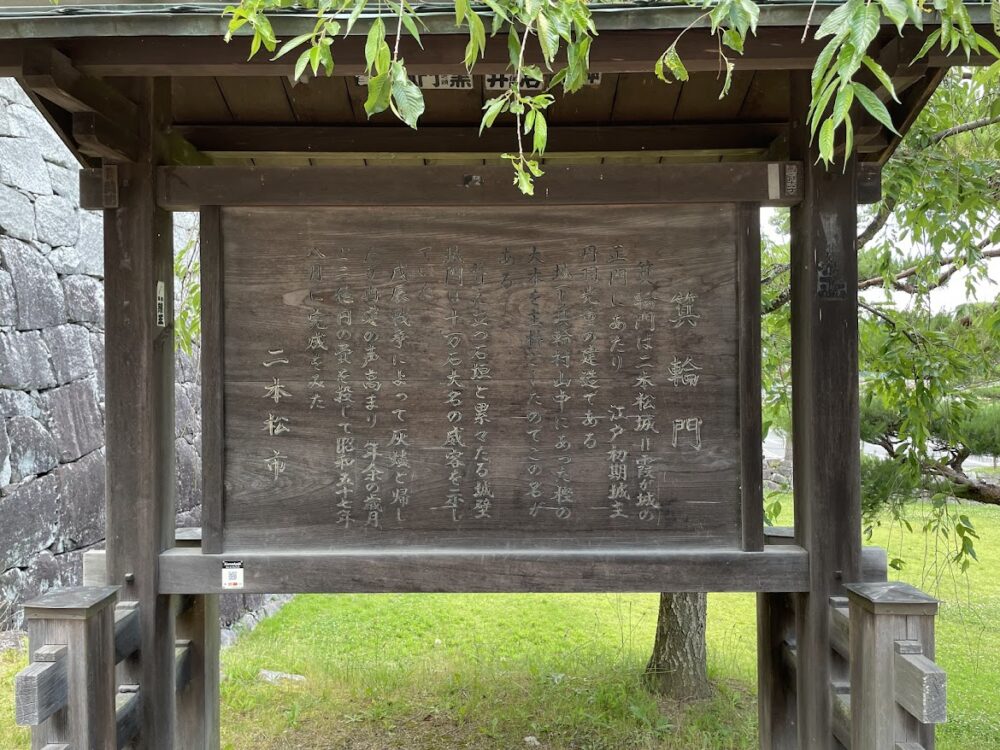 箕輪門
箕輪門は二本松城＝霞が城の
正門にあたり　江戸初期城主
丹羽光重の建造である
城下箕輪村山中にあった樫の
大木を主柱としたのでこの名が
ある
巨大な石垣と累々たる城壁
城門は十万石大名の威容を示し
ていた
戊辰戦争によって灰燼と帰し
たが
の声高まり　年余の歳月
と三億円の資を投して昭和五十七年
八月に完成をみた
二本松市